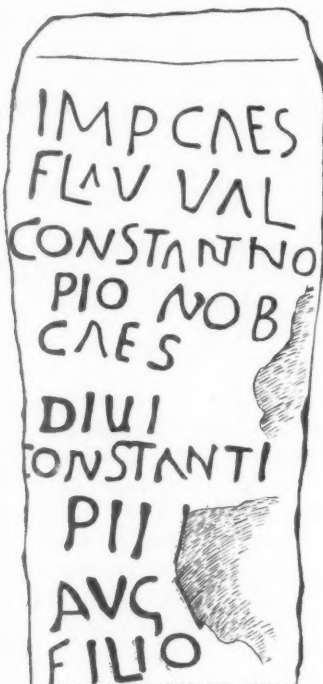 IMP CAES
FLAV VAL
CONSTANTNO
PIO NOB
CAES
DIUI
CONSTANTI
PII
AVG
FILIO